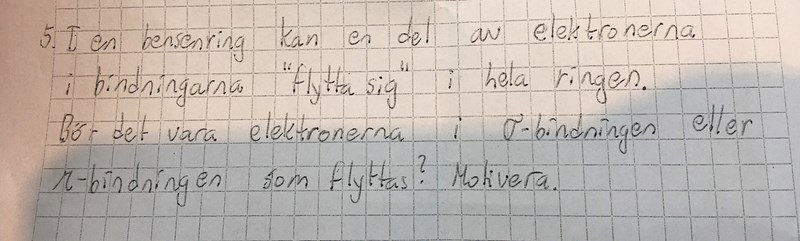 5. I en bensenring kan en del av elektronerna
i bindningarna "flytta sig" i hela ringen.
Bör det vara elektronerna i σ-bindningen eller
π-bindningen som flyttas? Motivera.